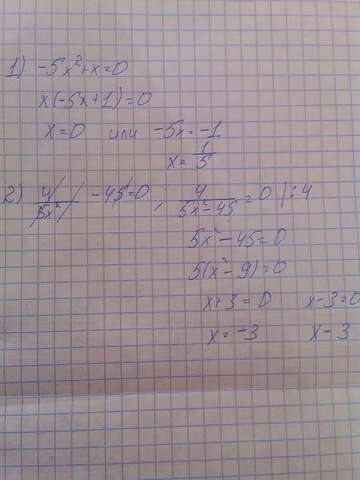 1) -5x²+x=0
x(-5x+1)=0
x=0 или -5x=-1
x=1/5
2) 4/5x² -45=0 ; 4/5x²-45=0 |:4
5x²-45=0
5(x²-9)=0
x+3=0 x-3=0
x=-3 x-3